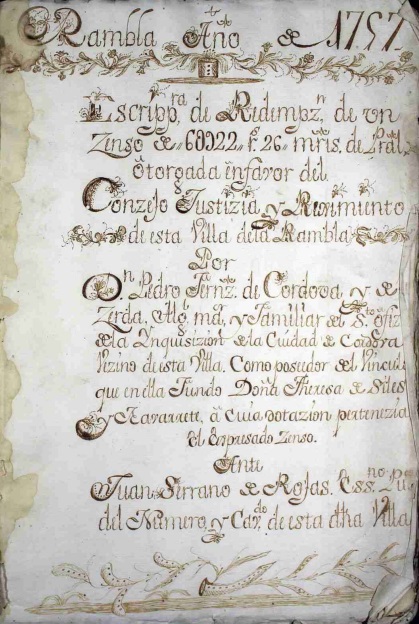 Rambla Año de 1757
Escripp.ra de Redempz.n de vn
Zenso de 60922 r.s 26 mrs. de Pral
Otorgada infavor del
Conzejo Justizia y Rexim​iento
de esta Villa dela Rambla
Por
D.n Pedro Fern.z de Cordova, y de
Zerda, Alg.l m.or y Familiar del S.to ofiz
de la Ynquisizion de la Ciudad de Cordova
Vezino de esta Villa, Como posedor del Vincul
que en ella Fundo Doña Theresa de Siles
y Navarrete, à Cuia dotazion pertenezia
el expresado Zenso.
Anti
Juan Serrano de Rojas. Ess.no pu
del Numero y Cav.do de esta dha Villa